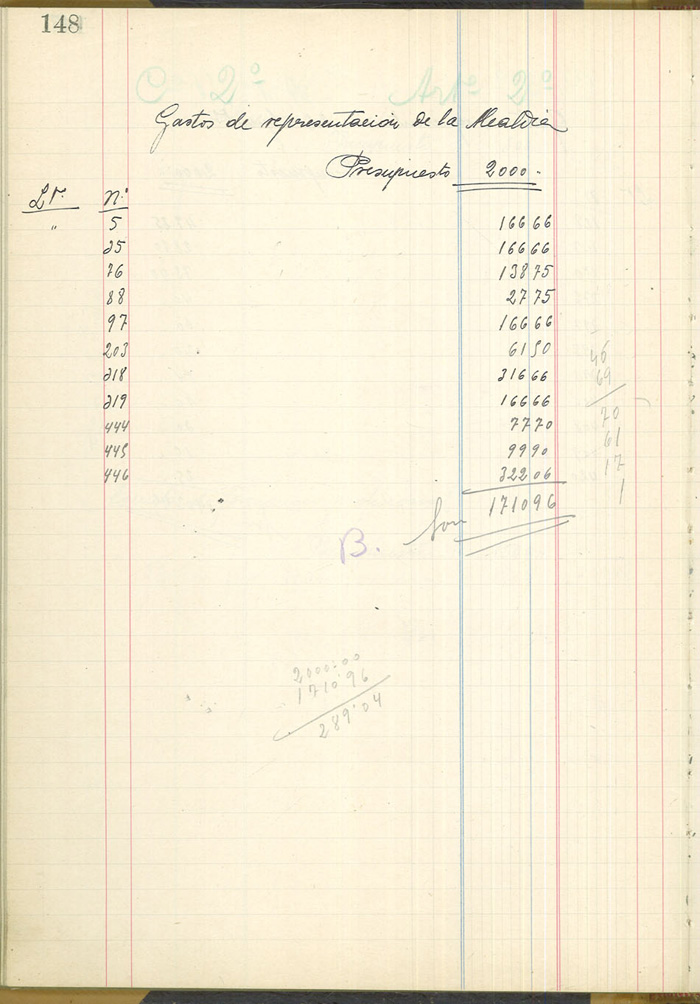 148
C 2º Art. 2º
Gastos de representación de la Alcaldía
Presupuesto 2000.-
Nº
" 5 166 66
25 166 66
76 138 75
88 27 75
97 166 66
203 61 50
218 316 66
219 166 66
444 77 70
445 99 90
446 322 06
Son 1710 96
46
69
70
61
17
1
B.
2000:00
1710:96
289:04